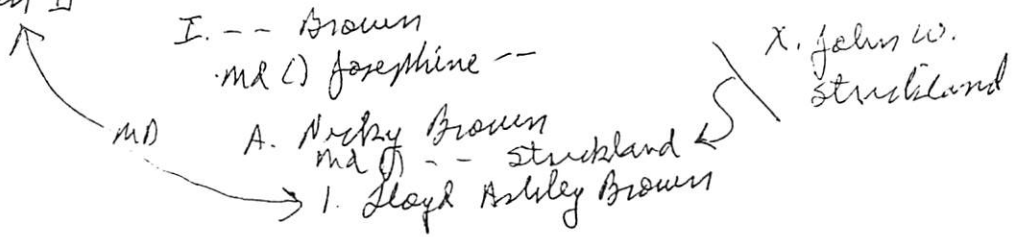 I. -- Brown
md () Josephine --
X. John W.
Strickland
MD
A. Nicky Brown
md () -- Strickland
1. Lloyd Ashley Brown